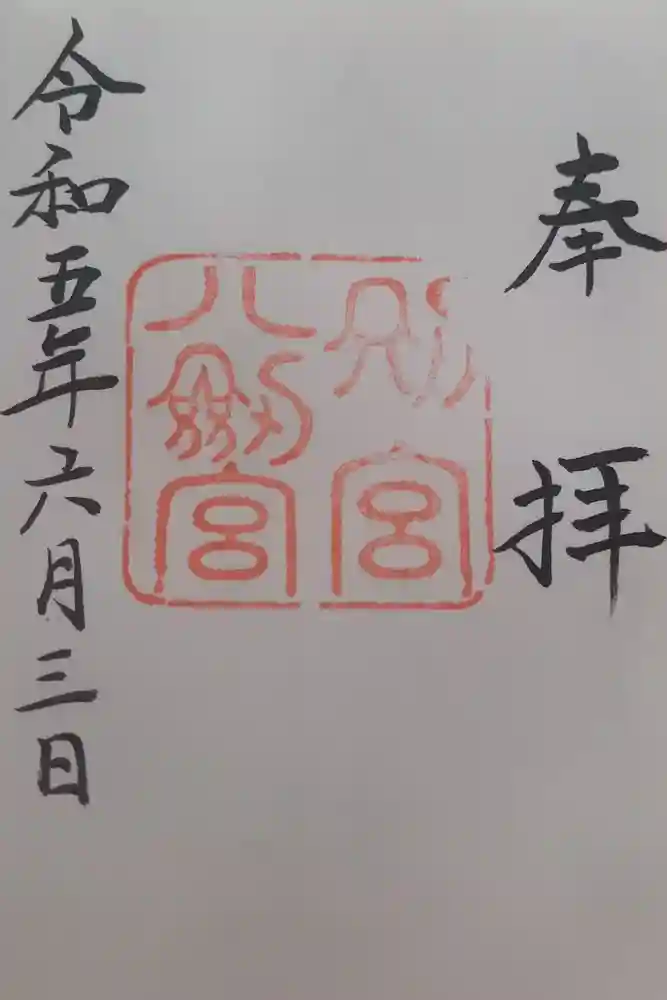 奉拝
別宮
八劔宮
令和五年六月三日